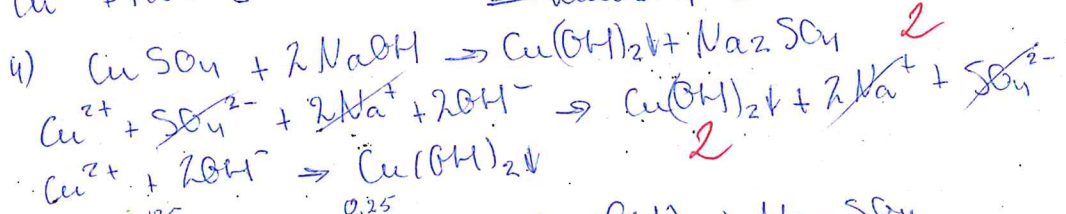 4) CuSO4 + 2NaOH → Cu(OH)2↓ + Na2SO4 2
Cu²⁺ + SO4²⁻ + 2Na⁺ + 2OH⁻ → Cu(OH)2↓ + 2Na⁺ + SO4²⁻
Cu²⁺ + 2OH⁻ → Cu(OH)2↓ 2
0,25